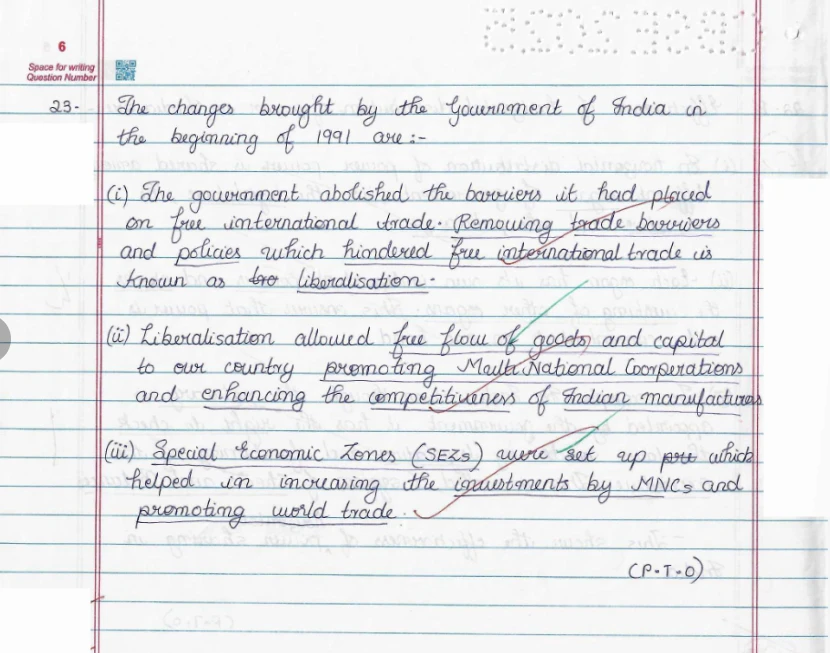 6
Space for writing
Question Number
23- The changes brought by the Government of India in
the beginning of 1991 are :-
(i) The government abolished the barriers it had placed
on free international trade. Removing trade barriers
and policies which hindered free international trade is
known as liberalisation.
(ii) Liberalisation allowed free flow of goods and capital
to our country promoting Multi National Coorperations
and enhancing the competitiveness of Indian manufactures
(iii) Special Economic Zones (SEZs) were set up which
helped in increasing the investments by MNCs and
promoting world trade.
(P.T.O)